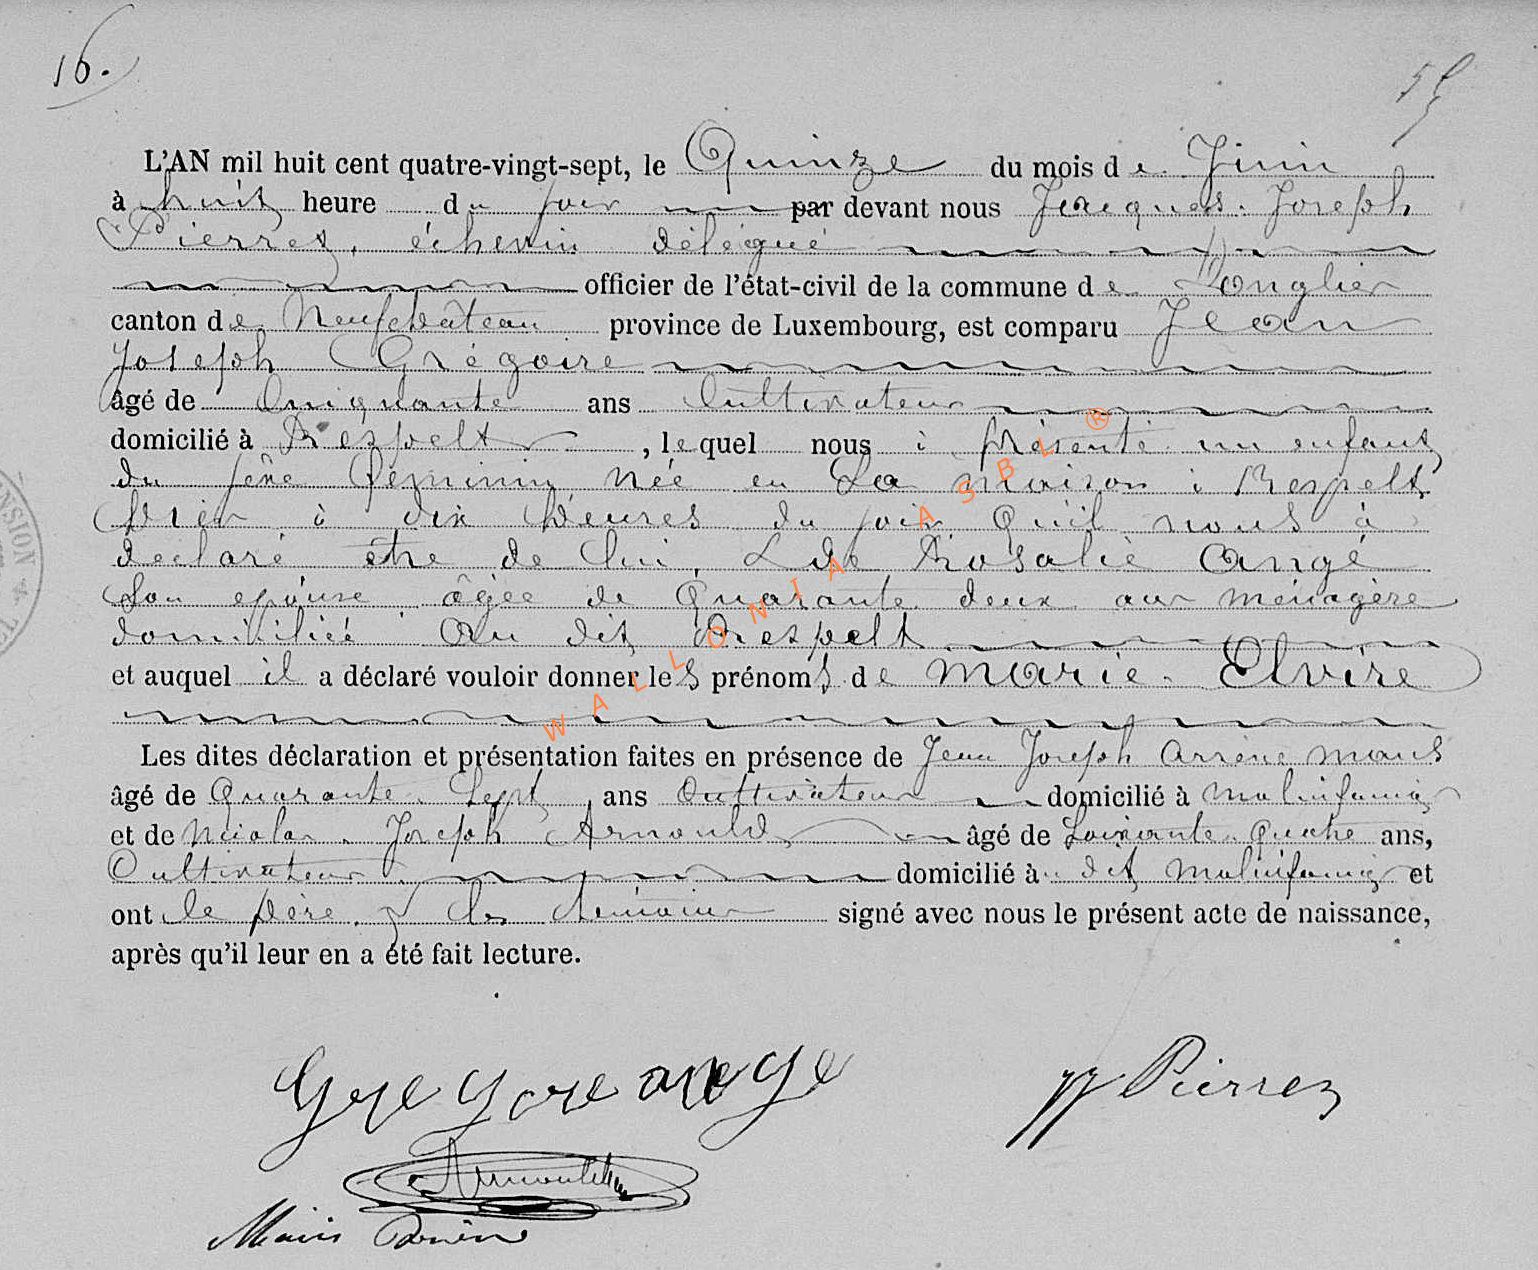 16.
L'AN mil huit cent quatre-vingt-sept, le Quinze du mois de Juin
à huit heure du soir par devant nous Jacques. Joseph
Pierrez, échevin délégué
officier de l'état-civil de la commune de Longlier
canton de Neufchâteau province de Luxembourg, est comparu Jean
Joseph Grégoire
âgé de Cinquante ans Cultivateur
domicilié à Respelt, lequel nous à présenté un enfant
du sexe féminin née en La maison à Respelt
hier à dix heures du soir Qu'il nous à
declaré être de lui, & de Rosalie Angé
Son epouse âgée de Quarante deux ans ménagère
domiciliée Au dit Respelt
et auquel il a déclaré vouloir donner les prénoms de Marie. Elvire
Les dites déclaration et présentation faites en présence de Jean Joseph Mous
âgé de Quarante. Sept ans Cultivateur domicilié à
et de Nicolas. Joseph Arnould âgé de Soixante. Quatre ans,
Cultivateur domicilié à dit et
ont le père. & les témoins signé avec nous le présent acte de naissance,
après qu'il leur en a été fait lecture.
Pierrez
Arnould
WALLONIA ASBL ®
NSION